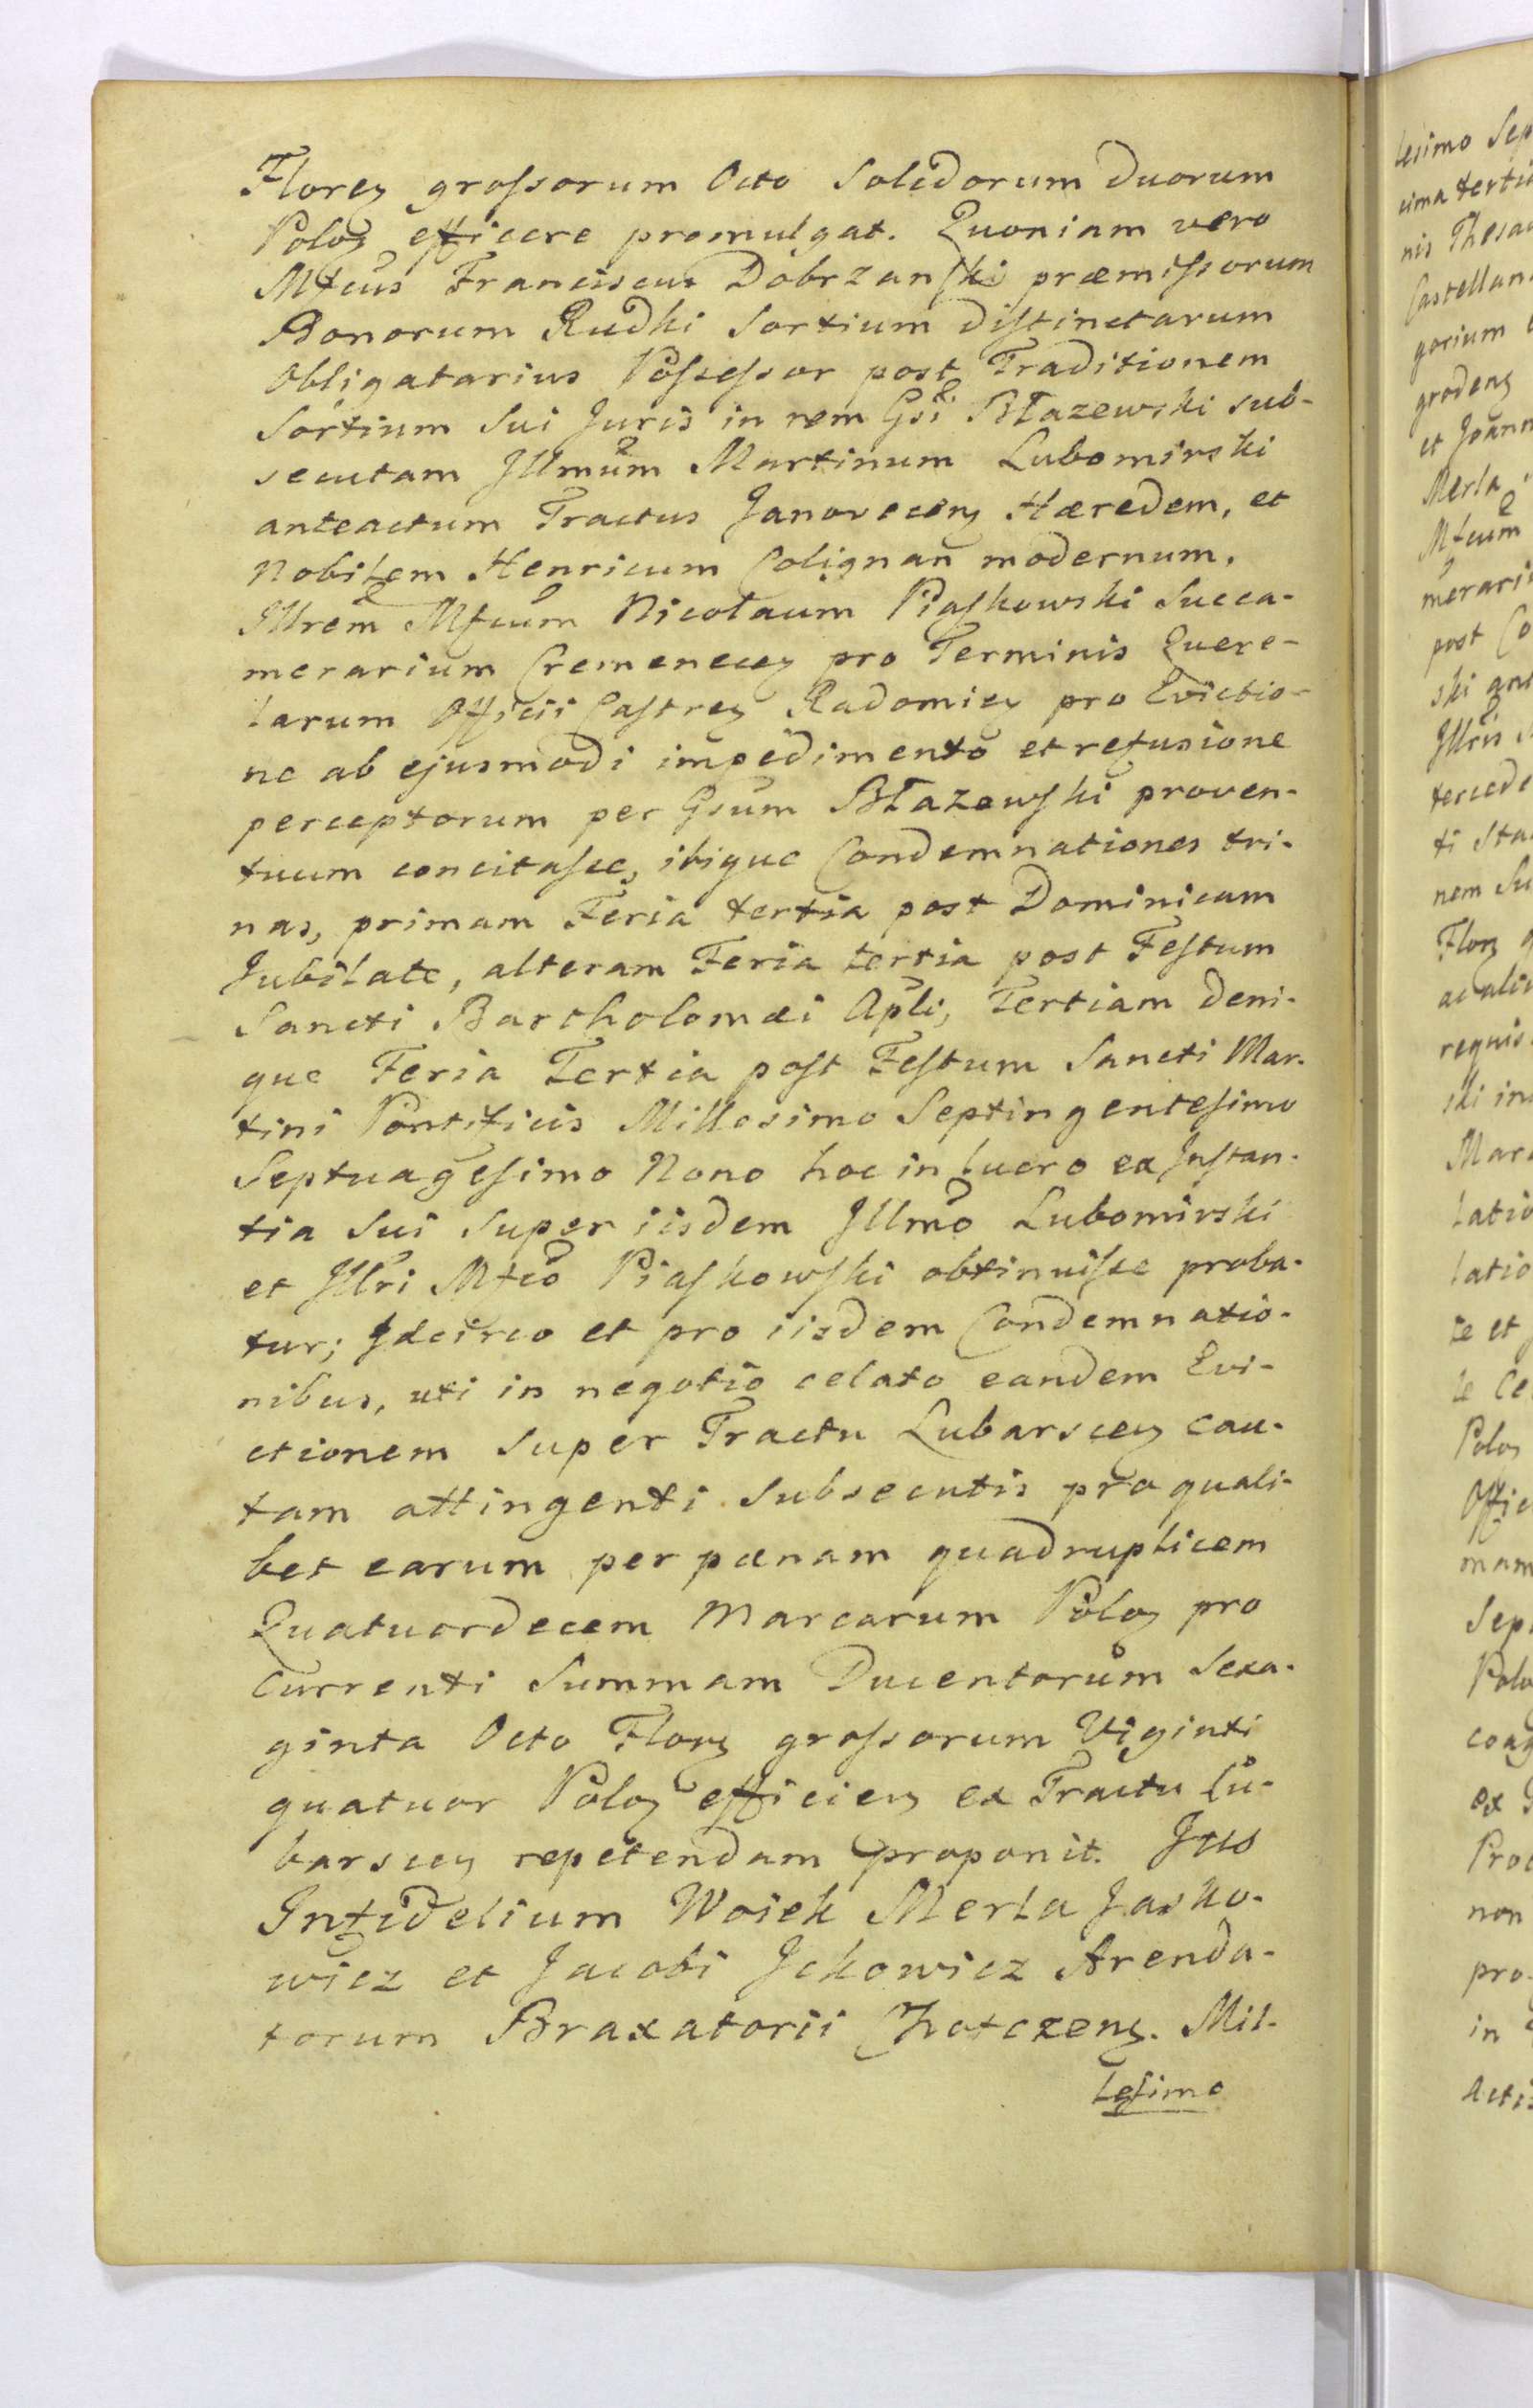 Floreӡ grossorum Octo Solidorum Duorum
Poloӡ efficere promulgat. Quoniam vero
Mfcus Franciscus Dobrzanski præmissorum
Bonorum Rudki Sortium distinctarum
Obligatarius Possessor post Traditionem
Sortium Sui Juris in rem Gsi Błazewski sub-
secutam Illmum Martinum Lubomirski
anteactum Tractus Janovecenӡ Hæredem, et
Nobilem Henricum Colignan modernum,
Illrem Mfcum Nicolaum Piaskowski Succa-
merarium Cremenecenӡ pro Terminis Quere-
larum Officii Castreӡ Radomieӡ pro Evictio-
ne ab ejusmodi impedimento et refusione
perceptorum per Gsum Błazewski proven-
tuum concitasse, ibique Condemnationes tri-
nas, primam Feria tertia post Dominicam
Jubilate, alteram Feria tertia post Festum
Sancti Bartholomæi Apli, Tertiam deni-
que Feria Tertia post Festum Sancti Mar-
tini Pontificis Millesimo Septingentesimo
Septuagesimo Nono hoc in lucro ex Instan-
tia Sui super iisdem Illmo Lubomirski
et Illri Mfco Piaskowski obtinuisse proba-
tur; Idcirco et pro iisdem Condemnatio-
nibus, uti in negotio celato eandem Evi-
ctionem super Tractu Lubarsceӡ cau-
tam attingenti subsecutis pro quali-
bet earum per pænam quadruplicem
Quatuordecem Marcarum Poloӡ pro
Currenti Summam Ducentorum Sexa-
ginta Octo Florӡ grossorum Viginti
quatuor Poloӡ efficienӡ ex Tractu Lu-
barsceӡ repetendam proponit. Jus
Infidelium Woiek Merla Jasko-
wicz et Jacobi Ickowicz Arenda-
torum Braxatorii Chotczenӡ. Mil-
lesimo
lesimo Sep
cima terti
nis Thesau
Castellan
gorium
grodenӡ
et Joann
Merla
Mfcum
merari
post Co
ski an
Illris
tercede
ti Sta
nem Su
Florӡ
ac ali
requis
ski in
Mar
latio
latio
te et
le Ce
Poloӡ
Offic
mam
Sep
Polo
coaӡ
ex
Pro
non
pro
in
Actis